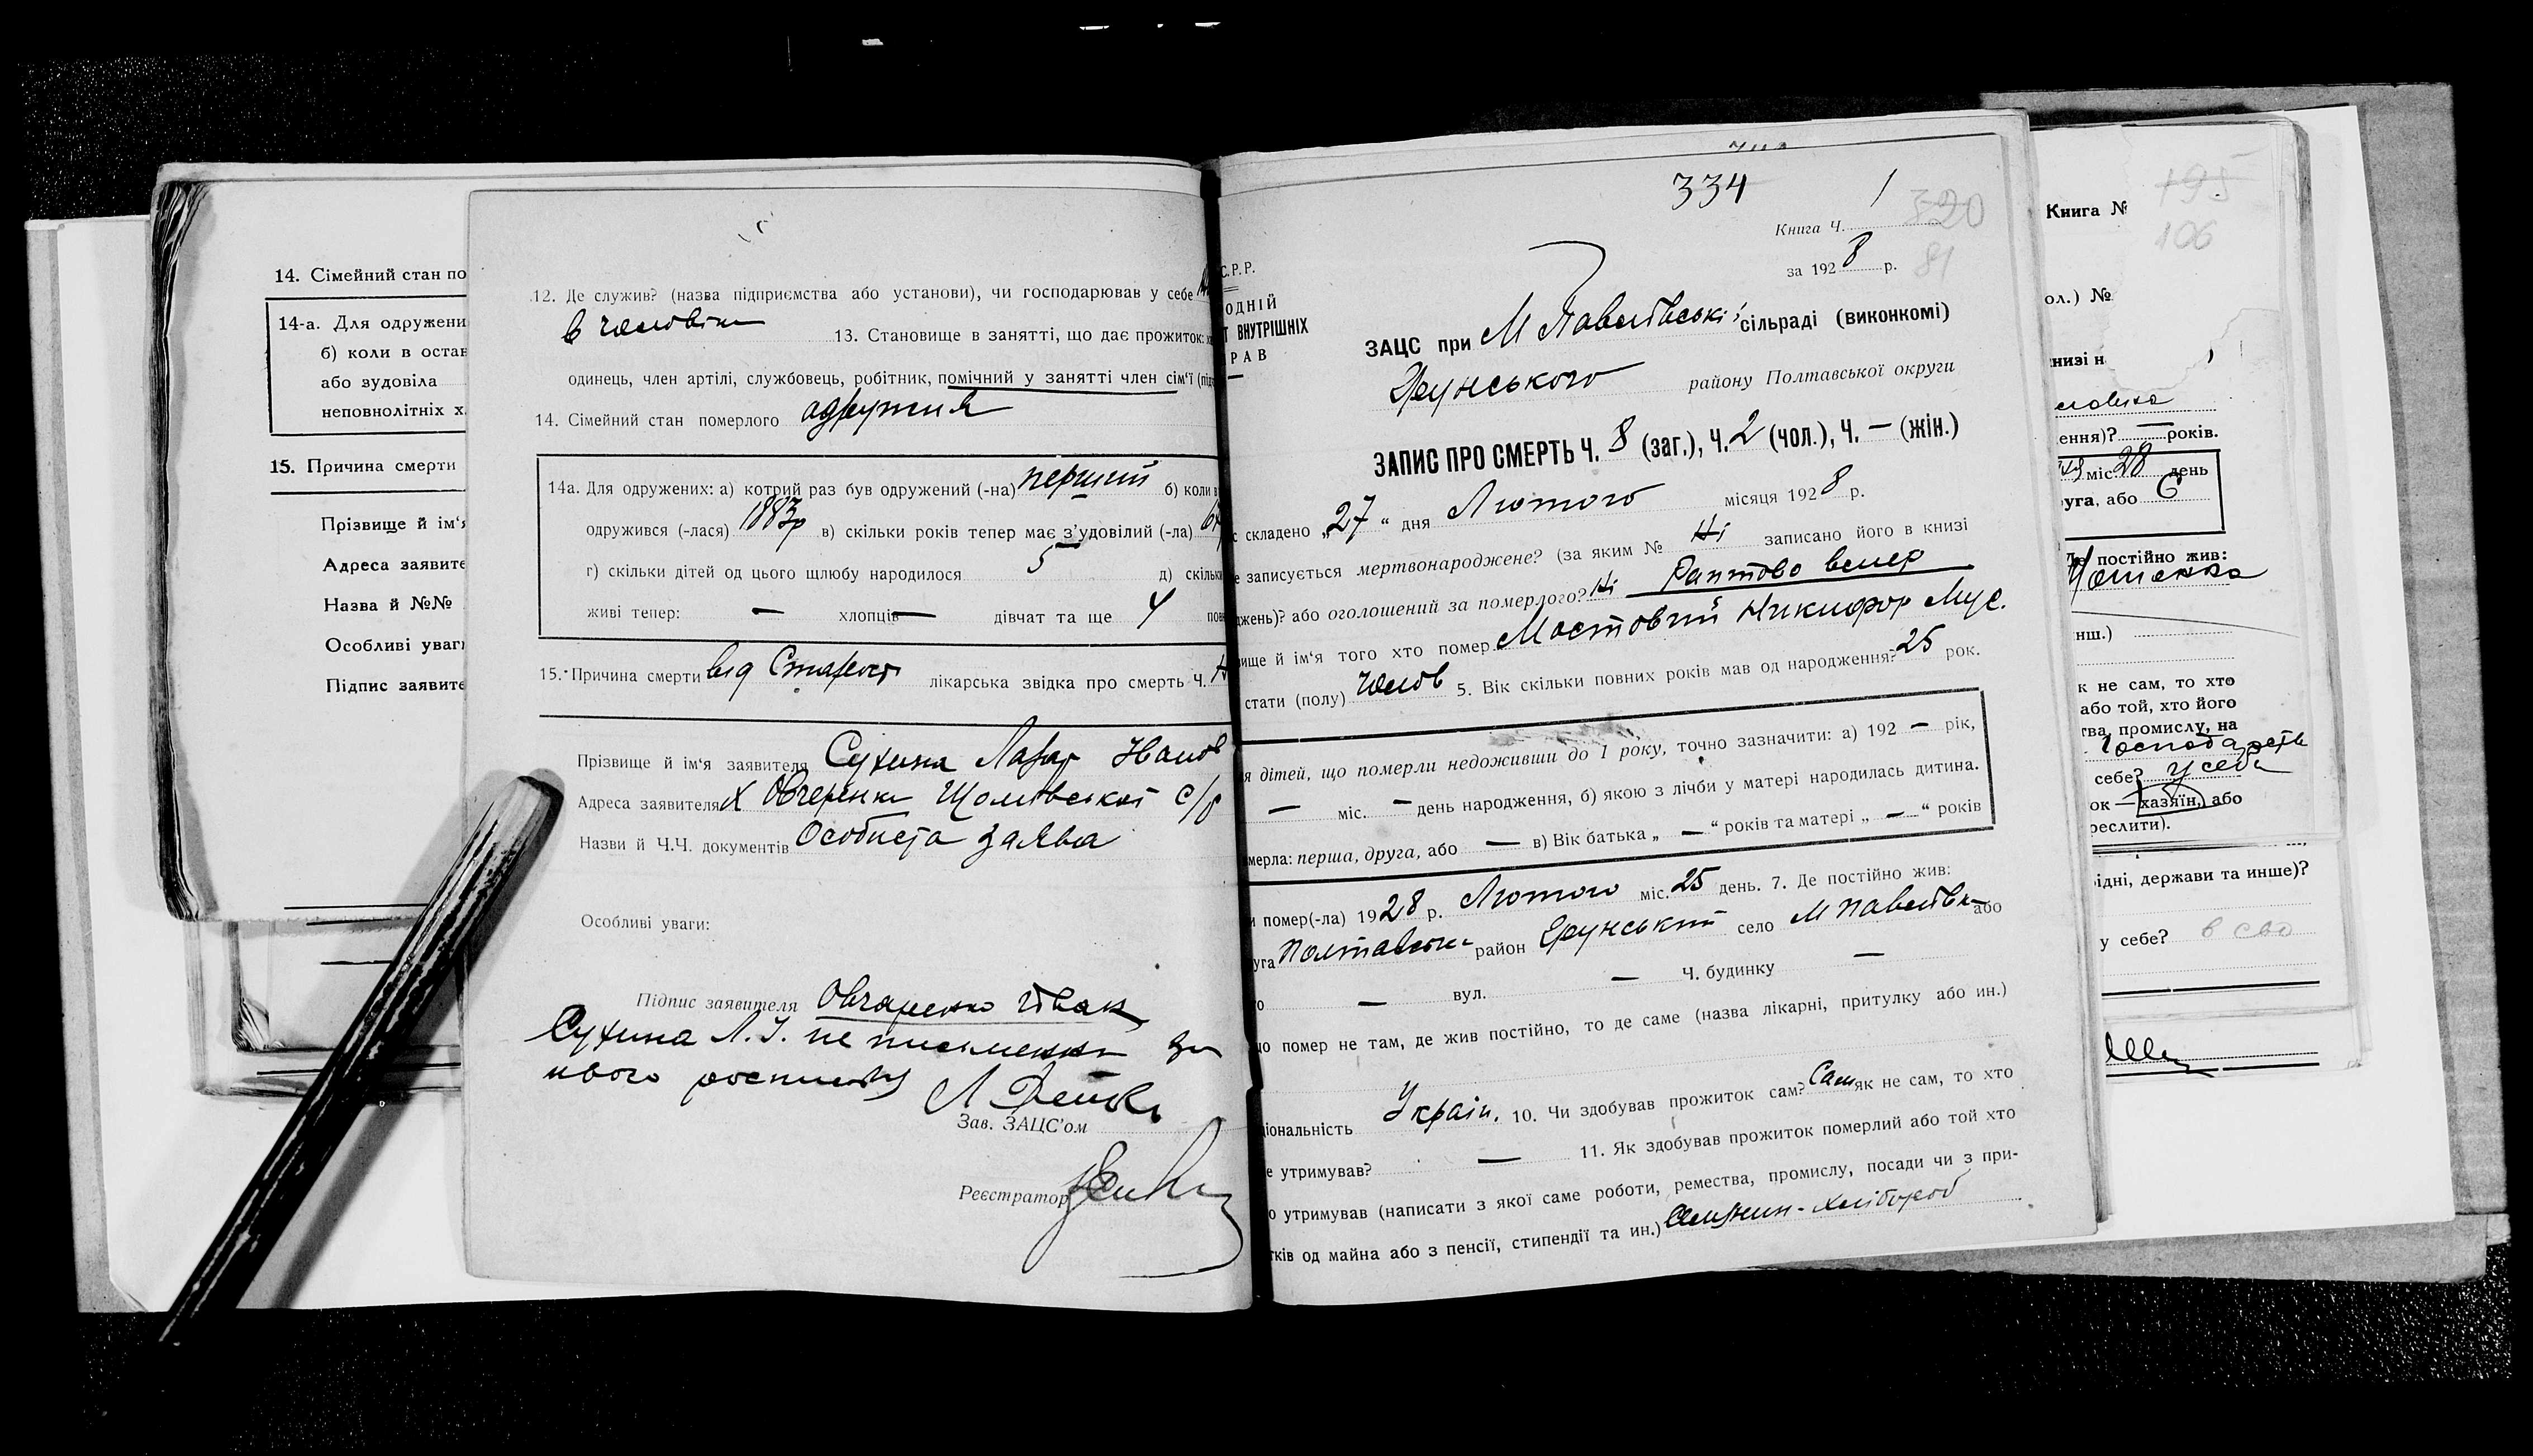 14. Сімейний стан по
14-а. Для одружени
б) коли в остан
або зудовіла
неповнолітніх х
15. Причина смерти
Прізвище й ім'я
Адреса заявите
Назва й №№
Особливі уваги
Підпис заявите
12. Де служив? (назва підприємства або установи), чи господарював у себе
в чоловіка 13. Становище в занятті, що дає прожиток:
одинець, член артілі, службовець, робітник, помічний у занятті член сім'ї (під
14. Сімейний стан померлого одружена
14а. Для одружених: а) котрий раз був одружений (-на) перший б) коли в
одружився (-лася) 1883р в) скільки років тепер має з'удовілий (-ла)
г) скільки дітей од цього шлюбу народилося 5 д) скільки
живі тепер: — хлопців — дівчат та ще 4 пов
15. Причина смерти від Старост лікарська звідка про смерть Ч. Н
Прізвище й ім'я заявителя Сухина Лазар Іванов
Адреса заявителя Х Овчаренки с/р
Назви й Ч.Ч. документів Особиста заява
Особливі уваги:
Підпис заявителя Овчаренко
Сухина Л. І. не письменни за
нього росписавсь
Зав. ЗАЦС'ом
Реєстратор
334
Книга Ч. 1 320
за 1928 р. 81
С.Р.Р.
ОДНІЙ
Т ВНУТРІШНІХ
РАВ
ЗАЦС при М Павлівські сільраді (виконкомі)
Грунського району Полтавської округи
ЗАПИС ПРО СМЕРТЬ Ч. 8 (заг.), Ч. 2 (чол.), Ч. — (жін.)
с складено „27“ дня Лютого місяця 1928 р.
е записується мертвонароджене? (за яким № Ні записано його в книзі
джень)? або оголошений за померлого? Ні Раптово вмер
вище й ім'я того хто помер Мостовий Никифор Мус.
стати (полу) чолов 5. Вік скільки повних років мав од народження? 25 рок.
я дітей, що померли недоживши до 1 року, точно зазначити: а) 192 — рік,
— міс. — день народження, б) якою з лічби у матері народилась дитина.
мерла: перша, друга, або — в) Вік батька „ — “ років та матері „ — “ років
и помер(-ла) 1928 р. Лютого міс. 25 день. 7. Де постійно жив:
уга Полтавськ район Грунський село М Павлівка або
го — вул. — Ч. будинку —
що помер не там, де жив постійно, то де саме (назва лікарні, притулку або ин.)
ціональність Україн. 10. Чи здобував прожиток сам? Сам як не сам, то хто
е утримував? — 11. Як здобував прожиток померлий або той хто
о утримував (написати з якої саме роботи, ремества, промислу, посади чи з при-
тків од майна або з пенсії, стипендії та ин.) Селянин - хлібороб
Книга № 195
106
ол.) №
низі н
еловіка
ення)? — років.
міс 28 день
руга, або 6
Де постійно жив:
нш.)
к не сам, то хто
або той, хто його
тва, промислу, на
господарств
себе? у себе
ок — хазяїн, або
реслити).
ідні, держави та инше)?
у себе? в сво